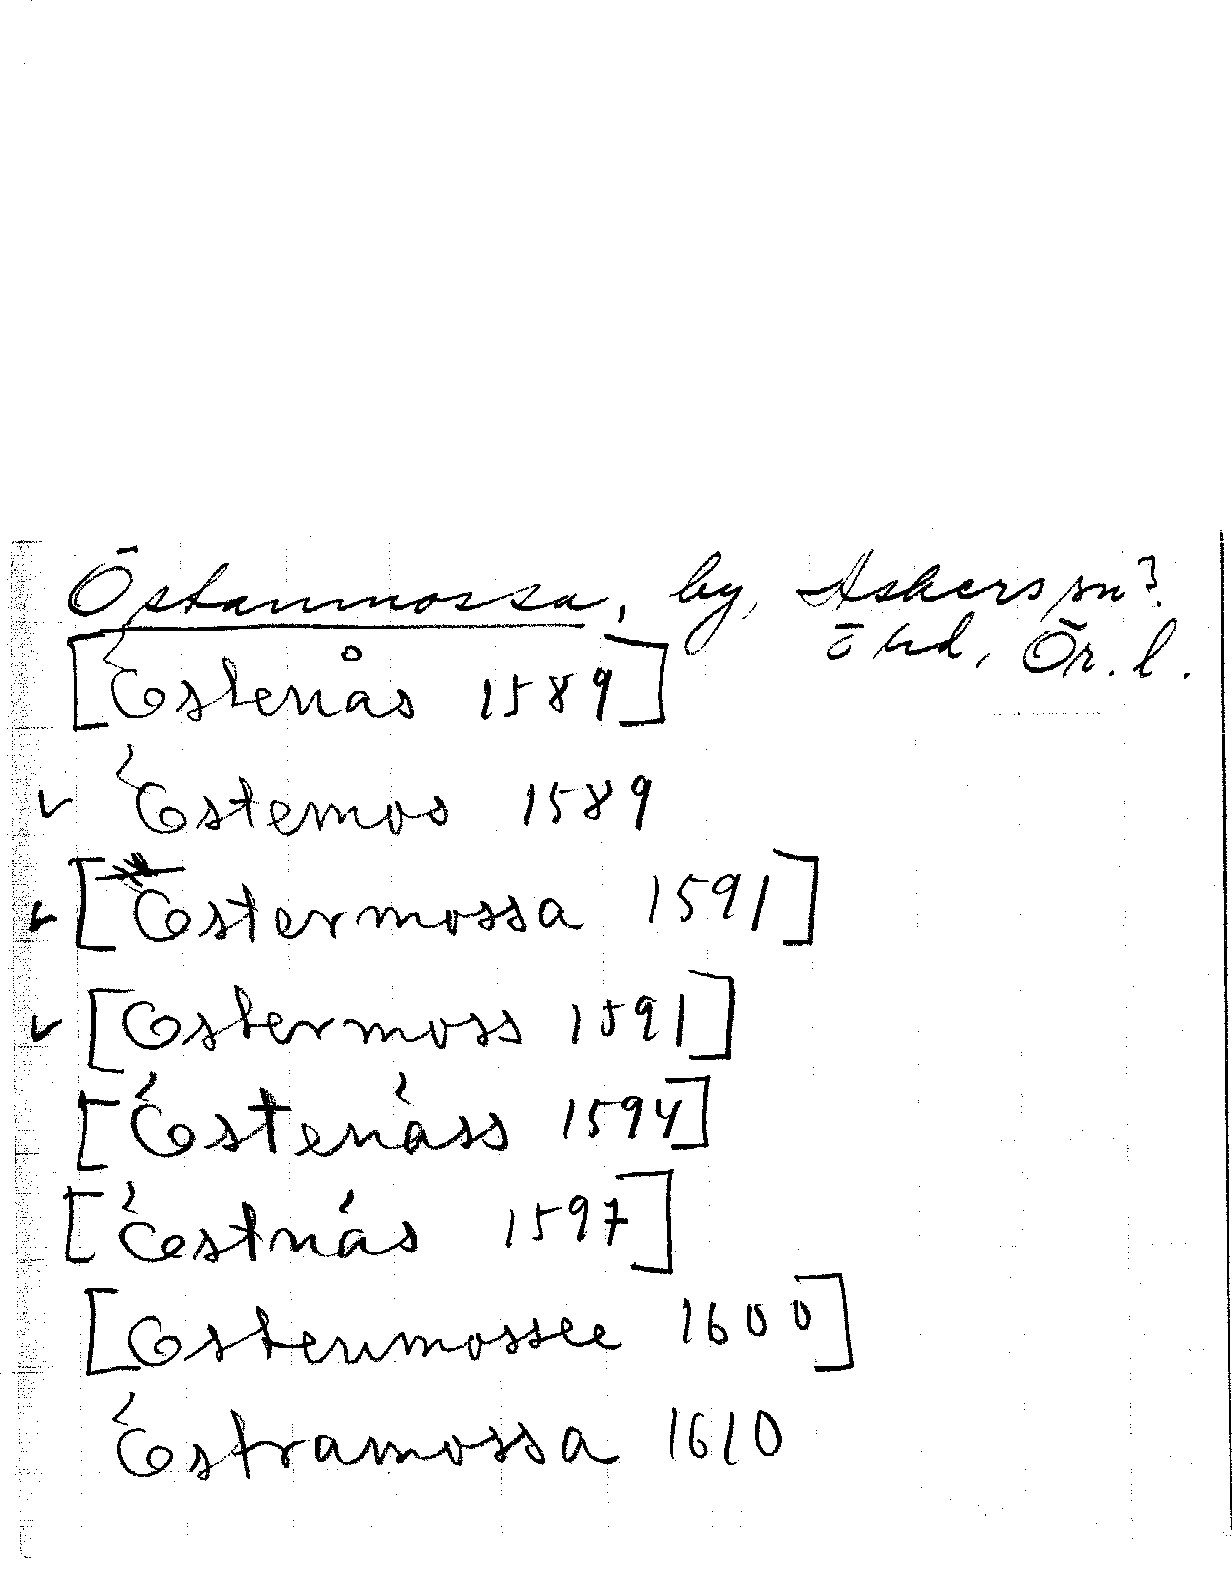 Östanmossa, by, Askers sn?
ö hd, Ör. l.
[Éstenås 1589]
Éstemos 1589
[Estermossa 1591]
[Estermoss 1591]
[Éstenáss 1594]
[Éstnás 1597]
[Estenmossee 1600]
Éstramossa 1610